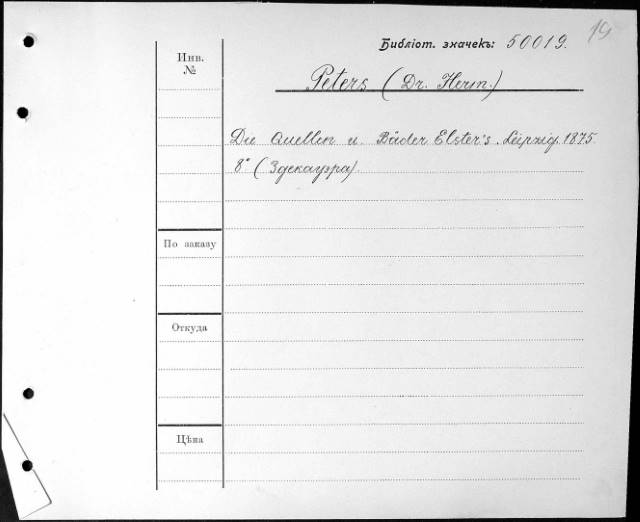 19
Библіот. значекъ: 50019.
Инв.
№
Peters (Dr. Herm.)
Die Quellen u. Bäder Elster's. Leipzig. 1875.
8° (Здекауэра)
По заказу
Откуда
Цѣна